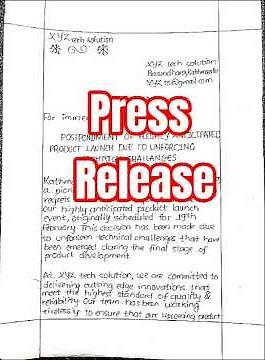 XYZ tech solution
XYZ tech solution
Basundhara, Kathmandu
@gmail.com
For imme
Press
POSTPONEMENT OF HIGHLY ANTICIPATED
PRODUCT LAUNCH DUE TO UNFORCING
CHALLANGES
Release
Kathm
a pion
regrets
our highly anticipated product launch
event, originally scheduled for 19th
February. This decision has been made due
to unforseen technical challenges that have
been emerged during the final stage of
product development.
At XYZ tech solution, we are committed to
delivering cutting edge innovations that
meet the highest standard of quality &
reliability. Our team has been working
tirelessly to ensure that our upcoming product